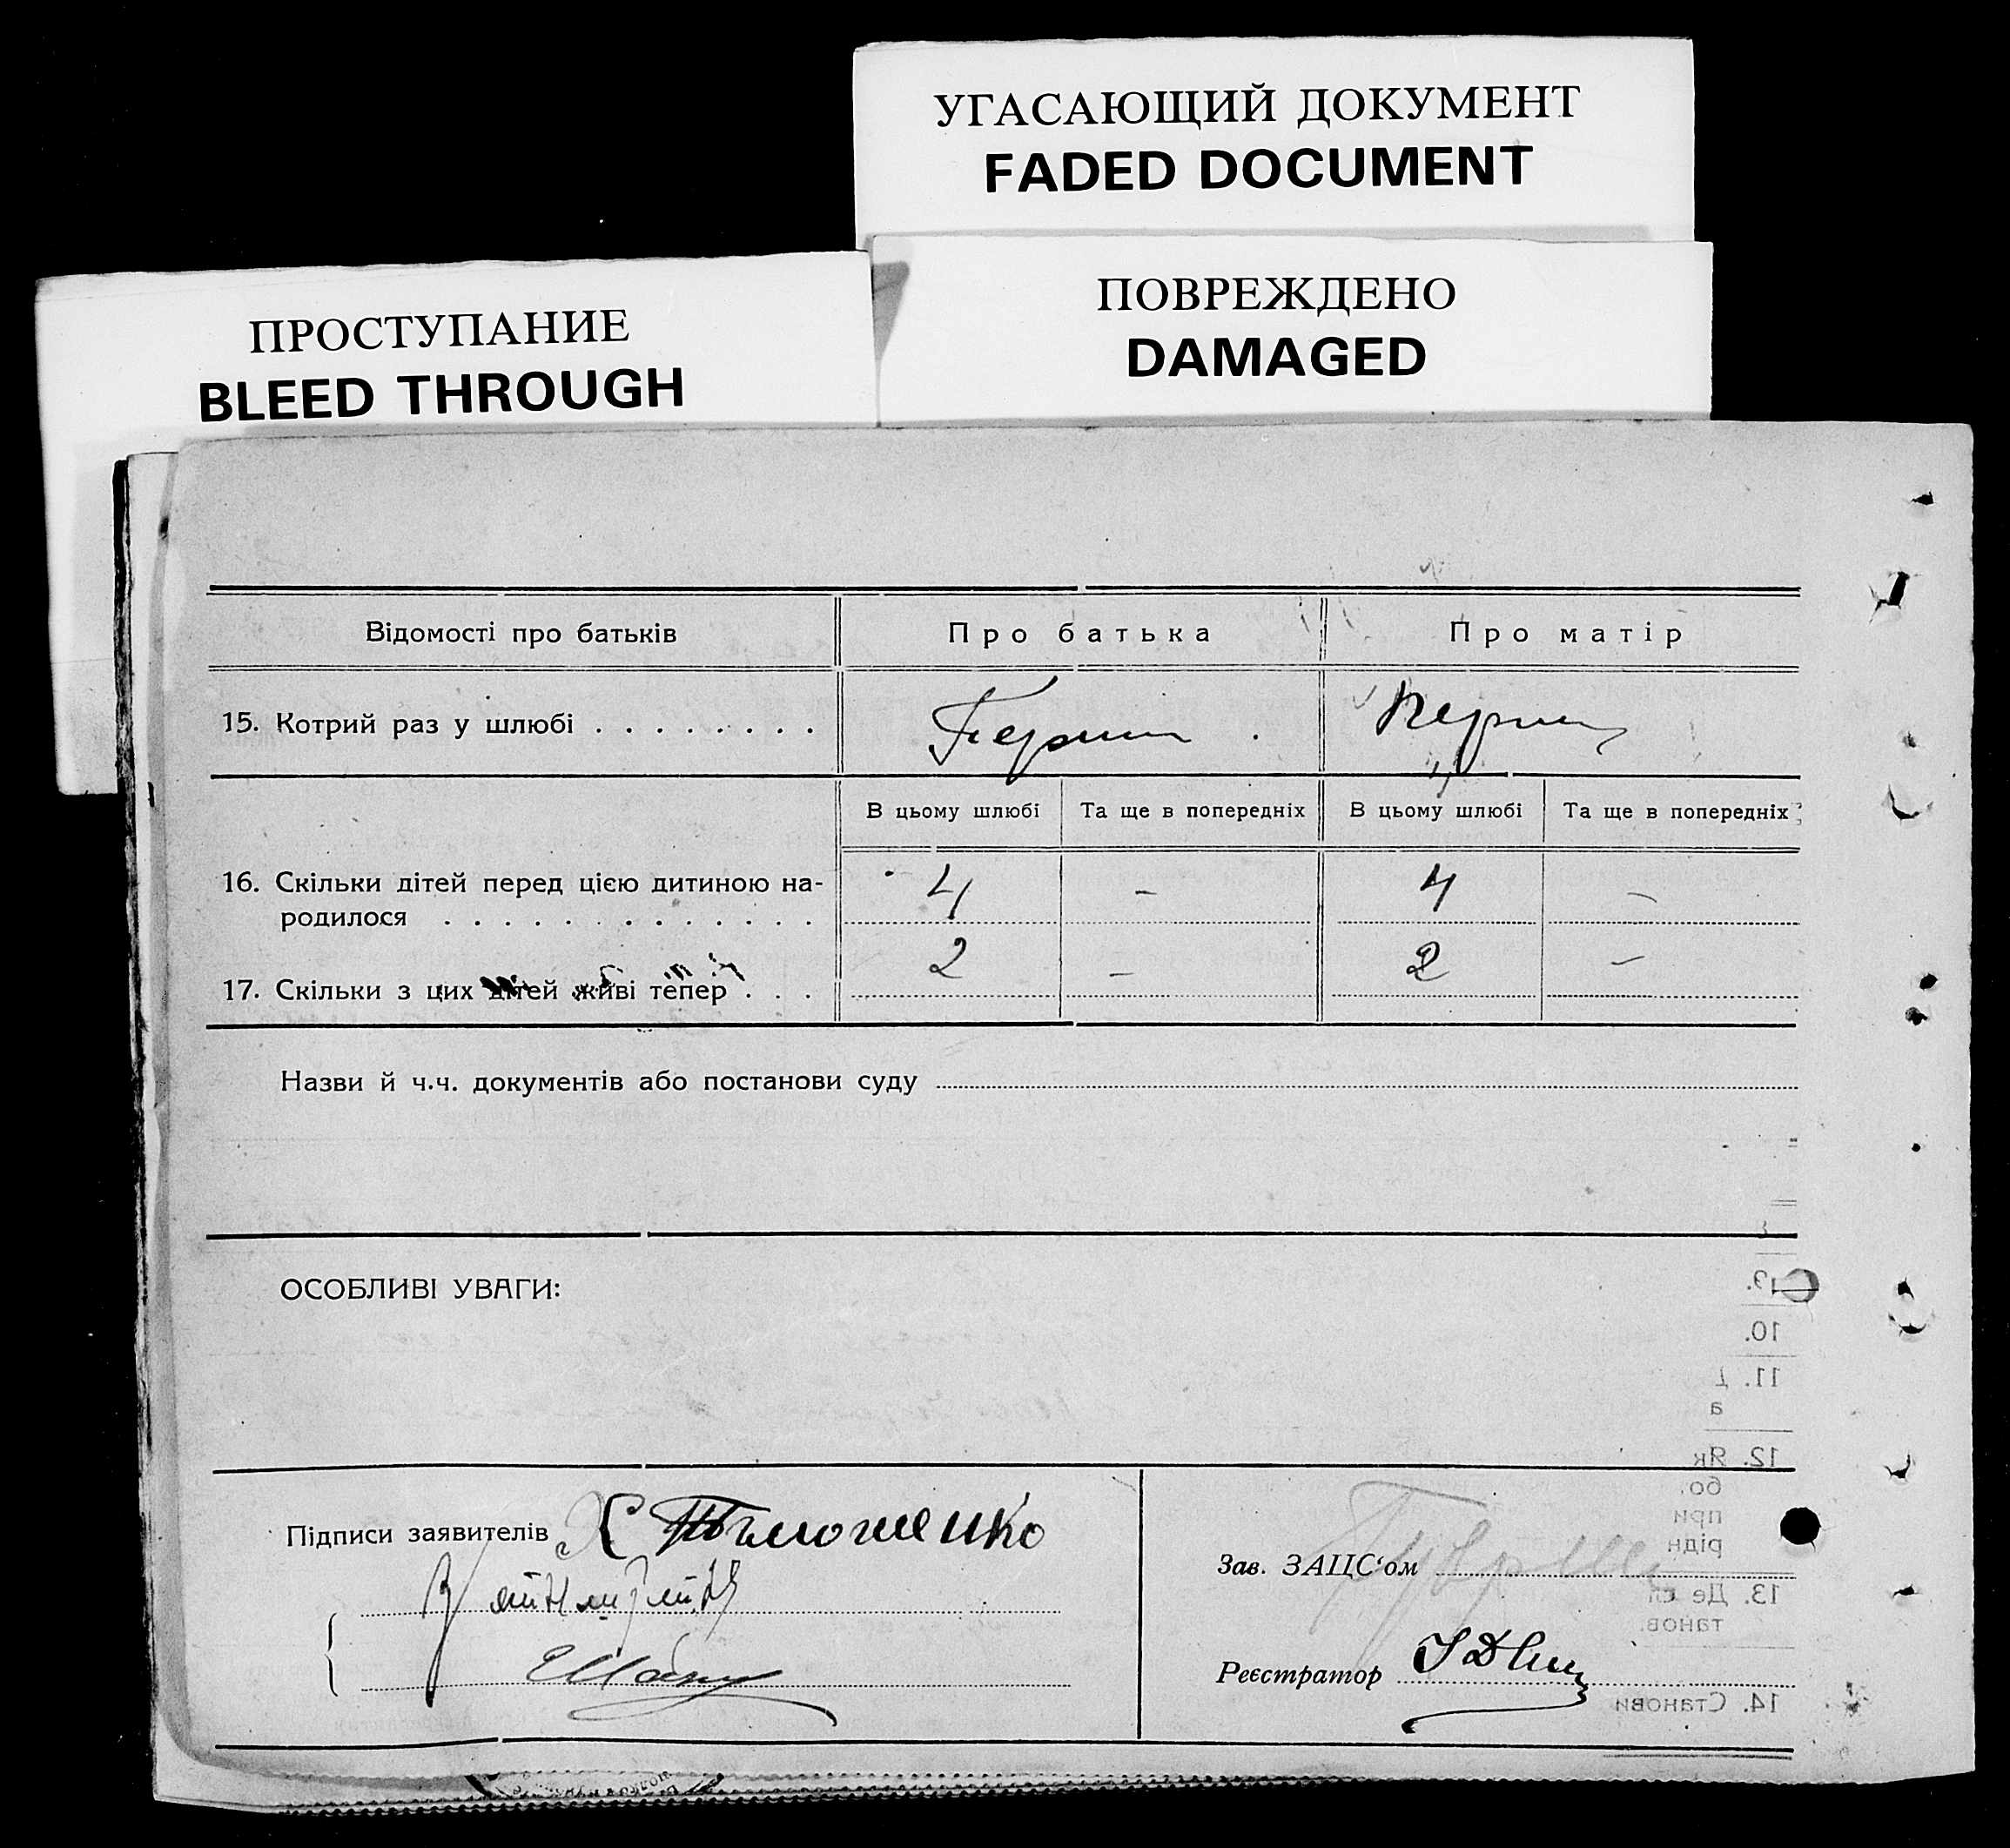 УГАСАЮЩИЙ ДОКУМЕНТ
FADED DOCUMENT
ПОВРЕЖДЕНО
DAMAGED
ПРОСТУПАНИЕ
BLEED THROUGH
Відомості про батьків Про батька Про матір
15. Котрий раз у шлюбі . . . . . . . .
В цьому шлюбі Та ще в попередніх В цьому шлюбі Та ще в попередніх
16. Скільки дітей перед цією дитиною на-
родилося . . . . . . . . . . . . . 4 – 4 –
17. Скільки з цих дітей живі тепер . . . 2 – 2 –
Назви й ч.ч. документів або постанови суду
ОСОБЛИВІ УВАГИ:
9.
10.
11.
12. Як
бо.
при
рідн
13. Де
танов.
14. Станови
Підписи заявителів
Зав. ЗАЦС'ом
Реєстратор